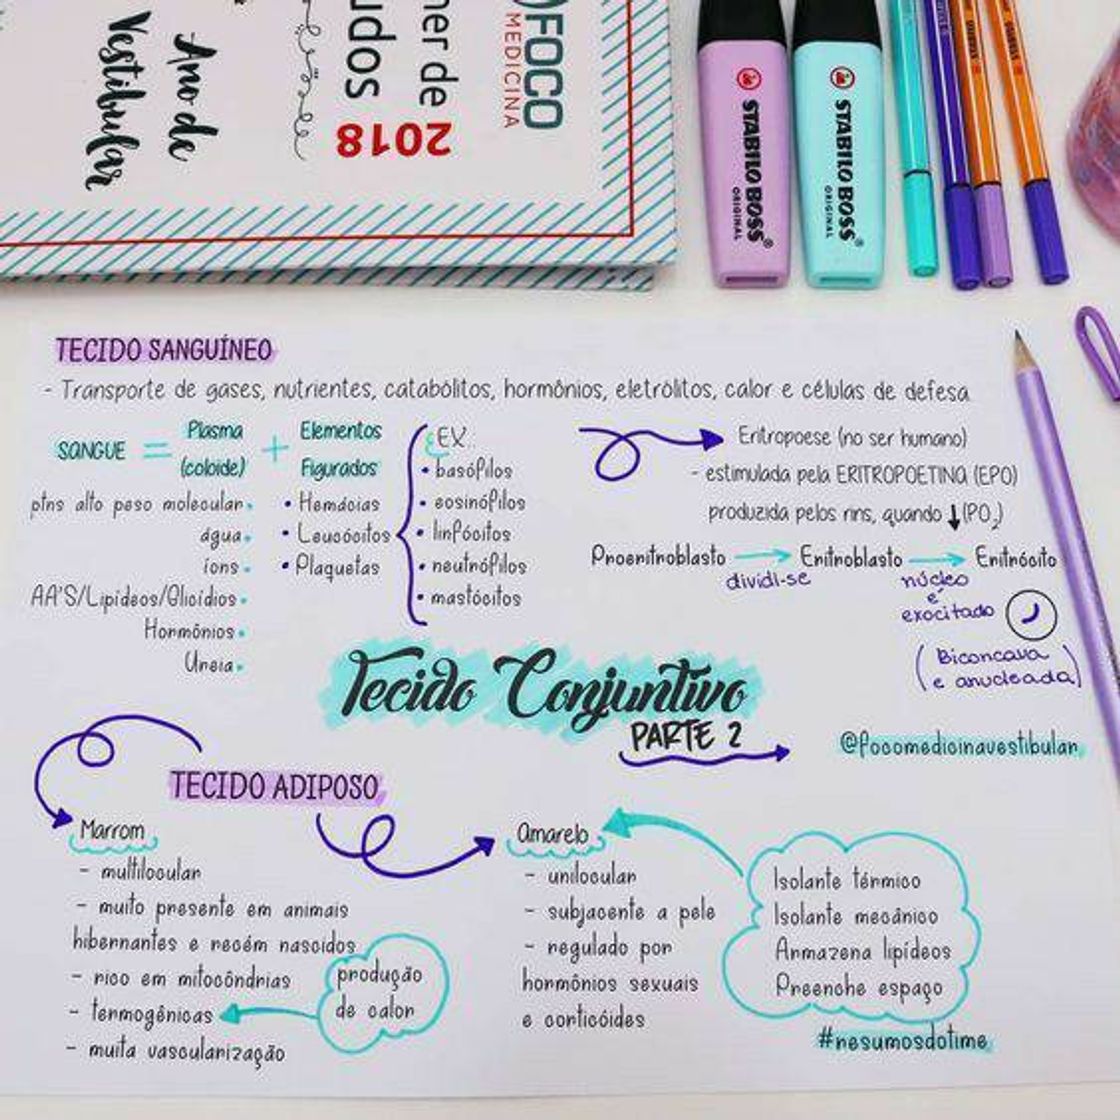 FOCO
MEDICINA
ner de
2018
udos
Ano de
Vestibular
STABILO BOSS®
ORIGINAL
STABILO BOSS®
ORIGINAL
TECIDO SANGUÍNEO
- Transporte de gases, nutrientes, catabólitos, hormônios, eletrólitos, calor e células de defesa
SANGUE = Plasma (coloide) + Elementos Figurados
ptns alto peso molecular
água
íons
AA'S/Lipídeos/Glicídios
Hormônios
Ureia
• Hemácias
• Leucócitos
• Plaquetas
EX.:
• basófilos
• eosinófilos
• linfócitos
• neutrófilos
• mastócitos
Eritropoese (no ser humano)
- estimulada pela ERITROPOETINA (EPO)
produzida pelos rins, quando ↓(PO₂)
Proeritroblasto → Eritroblasto → Eritrócito
dividi-se
núcleo
é
exocitado
(Biconcava
e anucleada)
Tecido Conjuntivo
PARTE 2
@focomedicinavestibular
TECIDO ADIPOSO
Marrom
- multilocular
- muito presente em animais
hibernantes e recém nascidos
- rico em mitocôndrias
- termogênicas
- muita vascularização
produção
de calor
Amarelo
- unilocular
- subjacente a pele
- regulado por
hormônios sexuais
e corticóides
Isolante térmico
Isolante mecânico
Armazena lipídeos
Preenche espaço
#resumosdotime